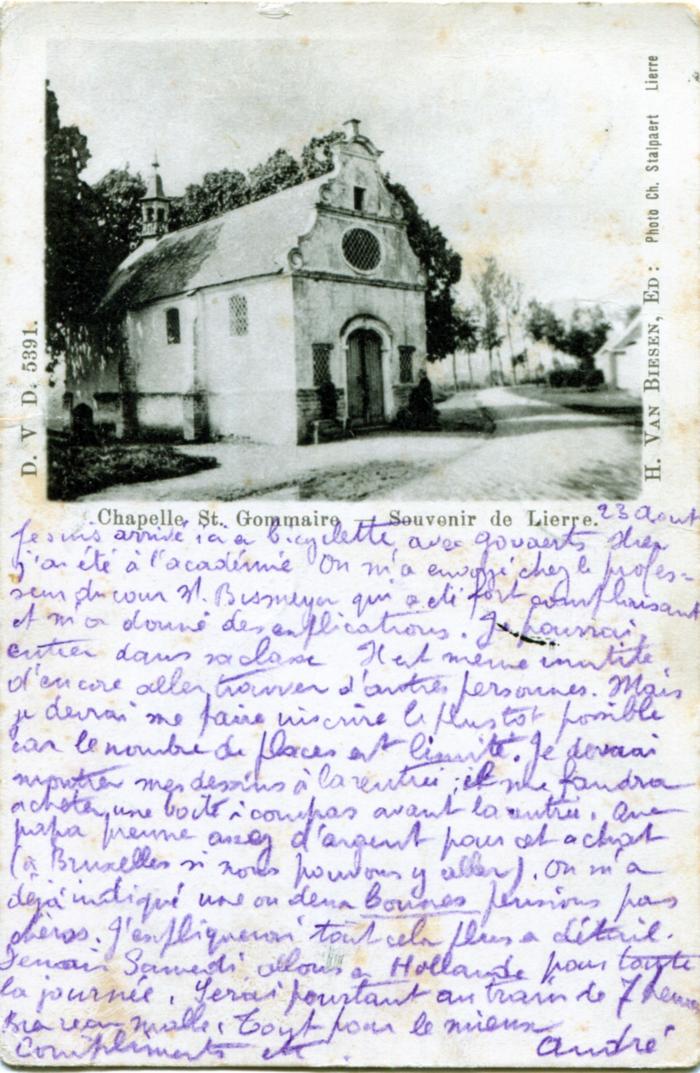 D. V D. 5391.
H. VAN BIESEN, ED: Photo Ch. Stalpaert Lierre
Chapelle St. Gommaire Souvenir de Lierre.
23 août
Je suis arrivé ici à bicyclette avec Govaerts
j'ai été à l'académie On m'a envoyé chez le profes=
seur du cour M. Bismeyer qui a été fort complaisant
et m'a donné des explications. Je pourrai
entrer dans sa classe Il est même inutile
d'encore aller trouver d'autres personnes. Mais
je devrai me faire inscrire le plus tôt possible
car le nombre de places est limité. Je devrai
montrer mes dessins à la rentrée, il me faudra
acheter une boîte à compas avant la rentrée. Que
papa prenne assez d'argent pour cet achat
(à Bruxelles si nous pouvons y aller). On m'a
déjà indiqué une ou deux bonnes pensions pas
chères. J'expliquerai tout cela plus a détail.
Samedi allons en Hollande pour toute
la journée. Serai pourtant au train de 7 heures
malle. Tout pour le mieux
Compliments etc. André